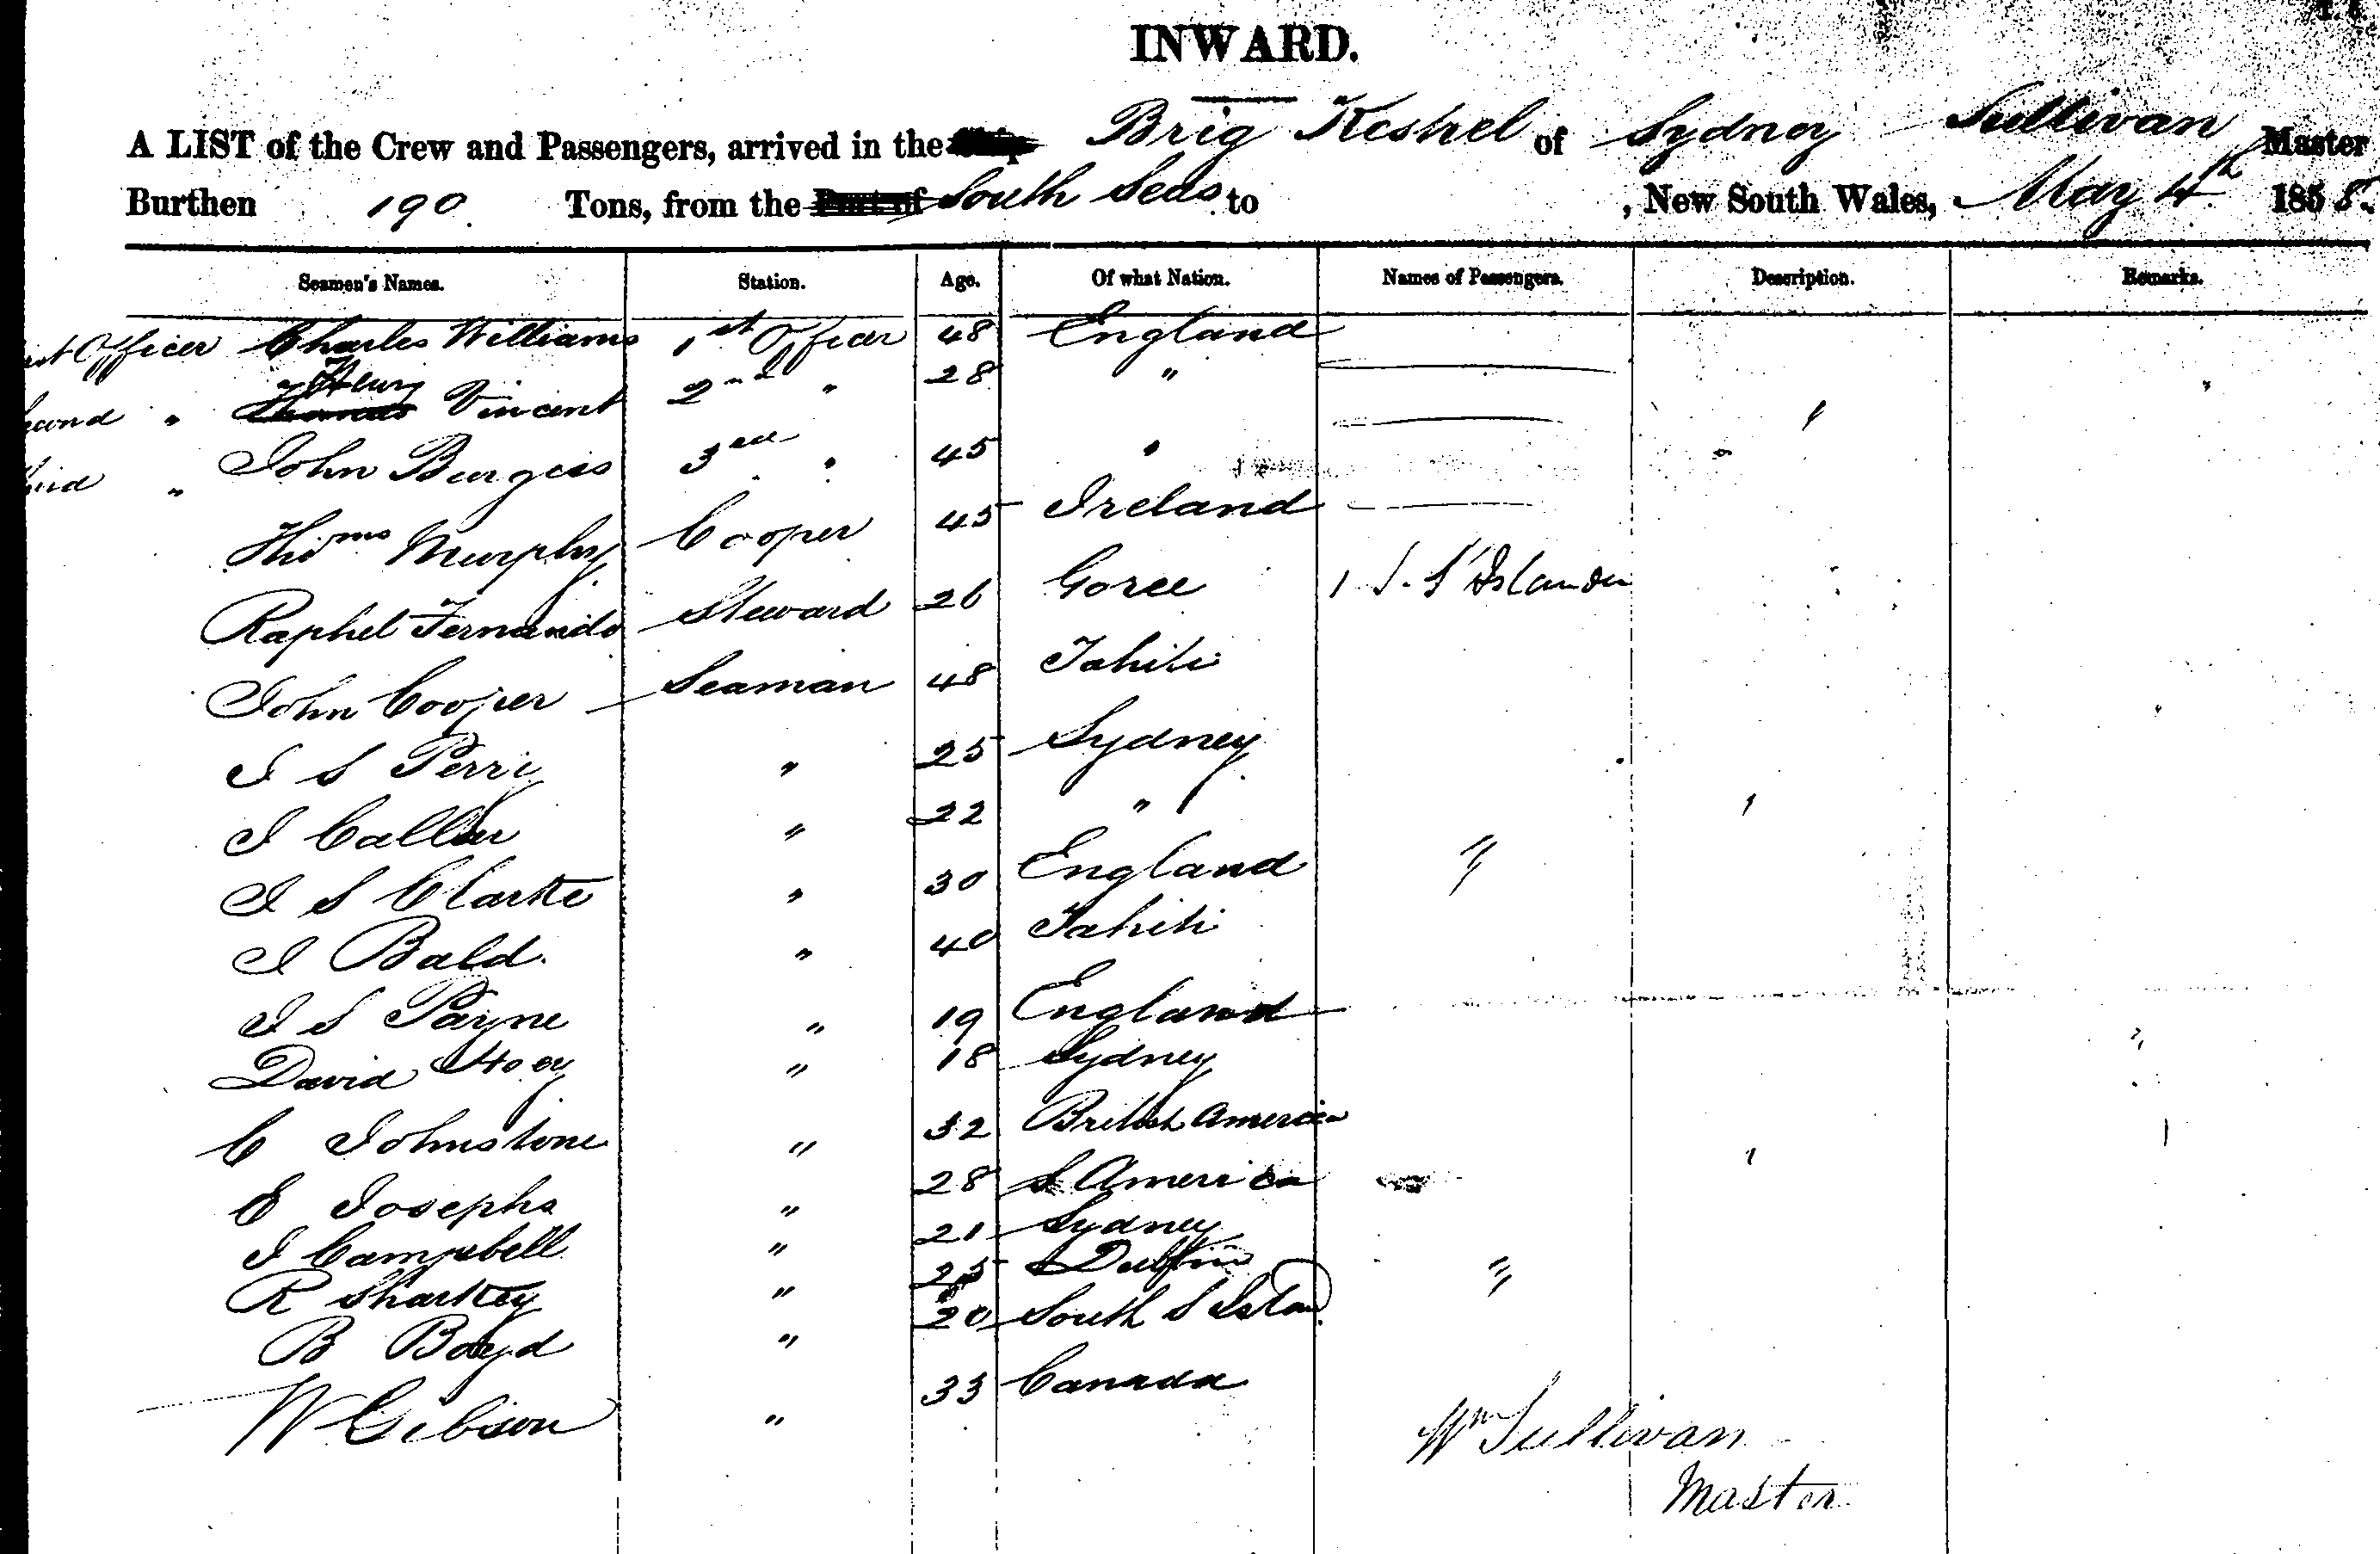 INWARD.
A LIST of the Crew and Passengers, arrived in the Ship Brig Kestrel of Sydney Sullivan Master
Burthen 190 Tons, from the Port of South Seas to , New South Wales, May 4th 1858.
Seamen's Names. Station. Age. Of what Nation. Names of Passengers. Description. Remarks.
Officer Charles Williams 1st Officer 48 England
" Henry Vincent 2nd " 28 "
" John Burgess 3rd " 45 "
Thomas Murphy Cooper 45 Ireland
Raphel Fernando Steward 26 Goree 1 S. S Islander
John Cooper Seaman 48 Tahiti
J S Perry " 25 Sydney
J Callar " 22 "
J S Clarke " 30 England
J Bald. " 40 Tahiti
J S Payne " 19 England
David Hoey " 18 Sydney
C Johnstone " 32 British America
E Josephs " 28 S America
J Campbell " 21 Sydney
R Sharkey " 25 Dublin
B Boyd " 20 South S Islan
W Gibson " 33 Canada
Wm Sullivan
Master